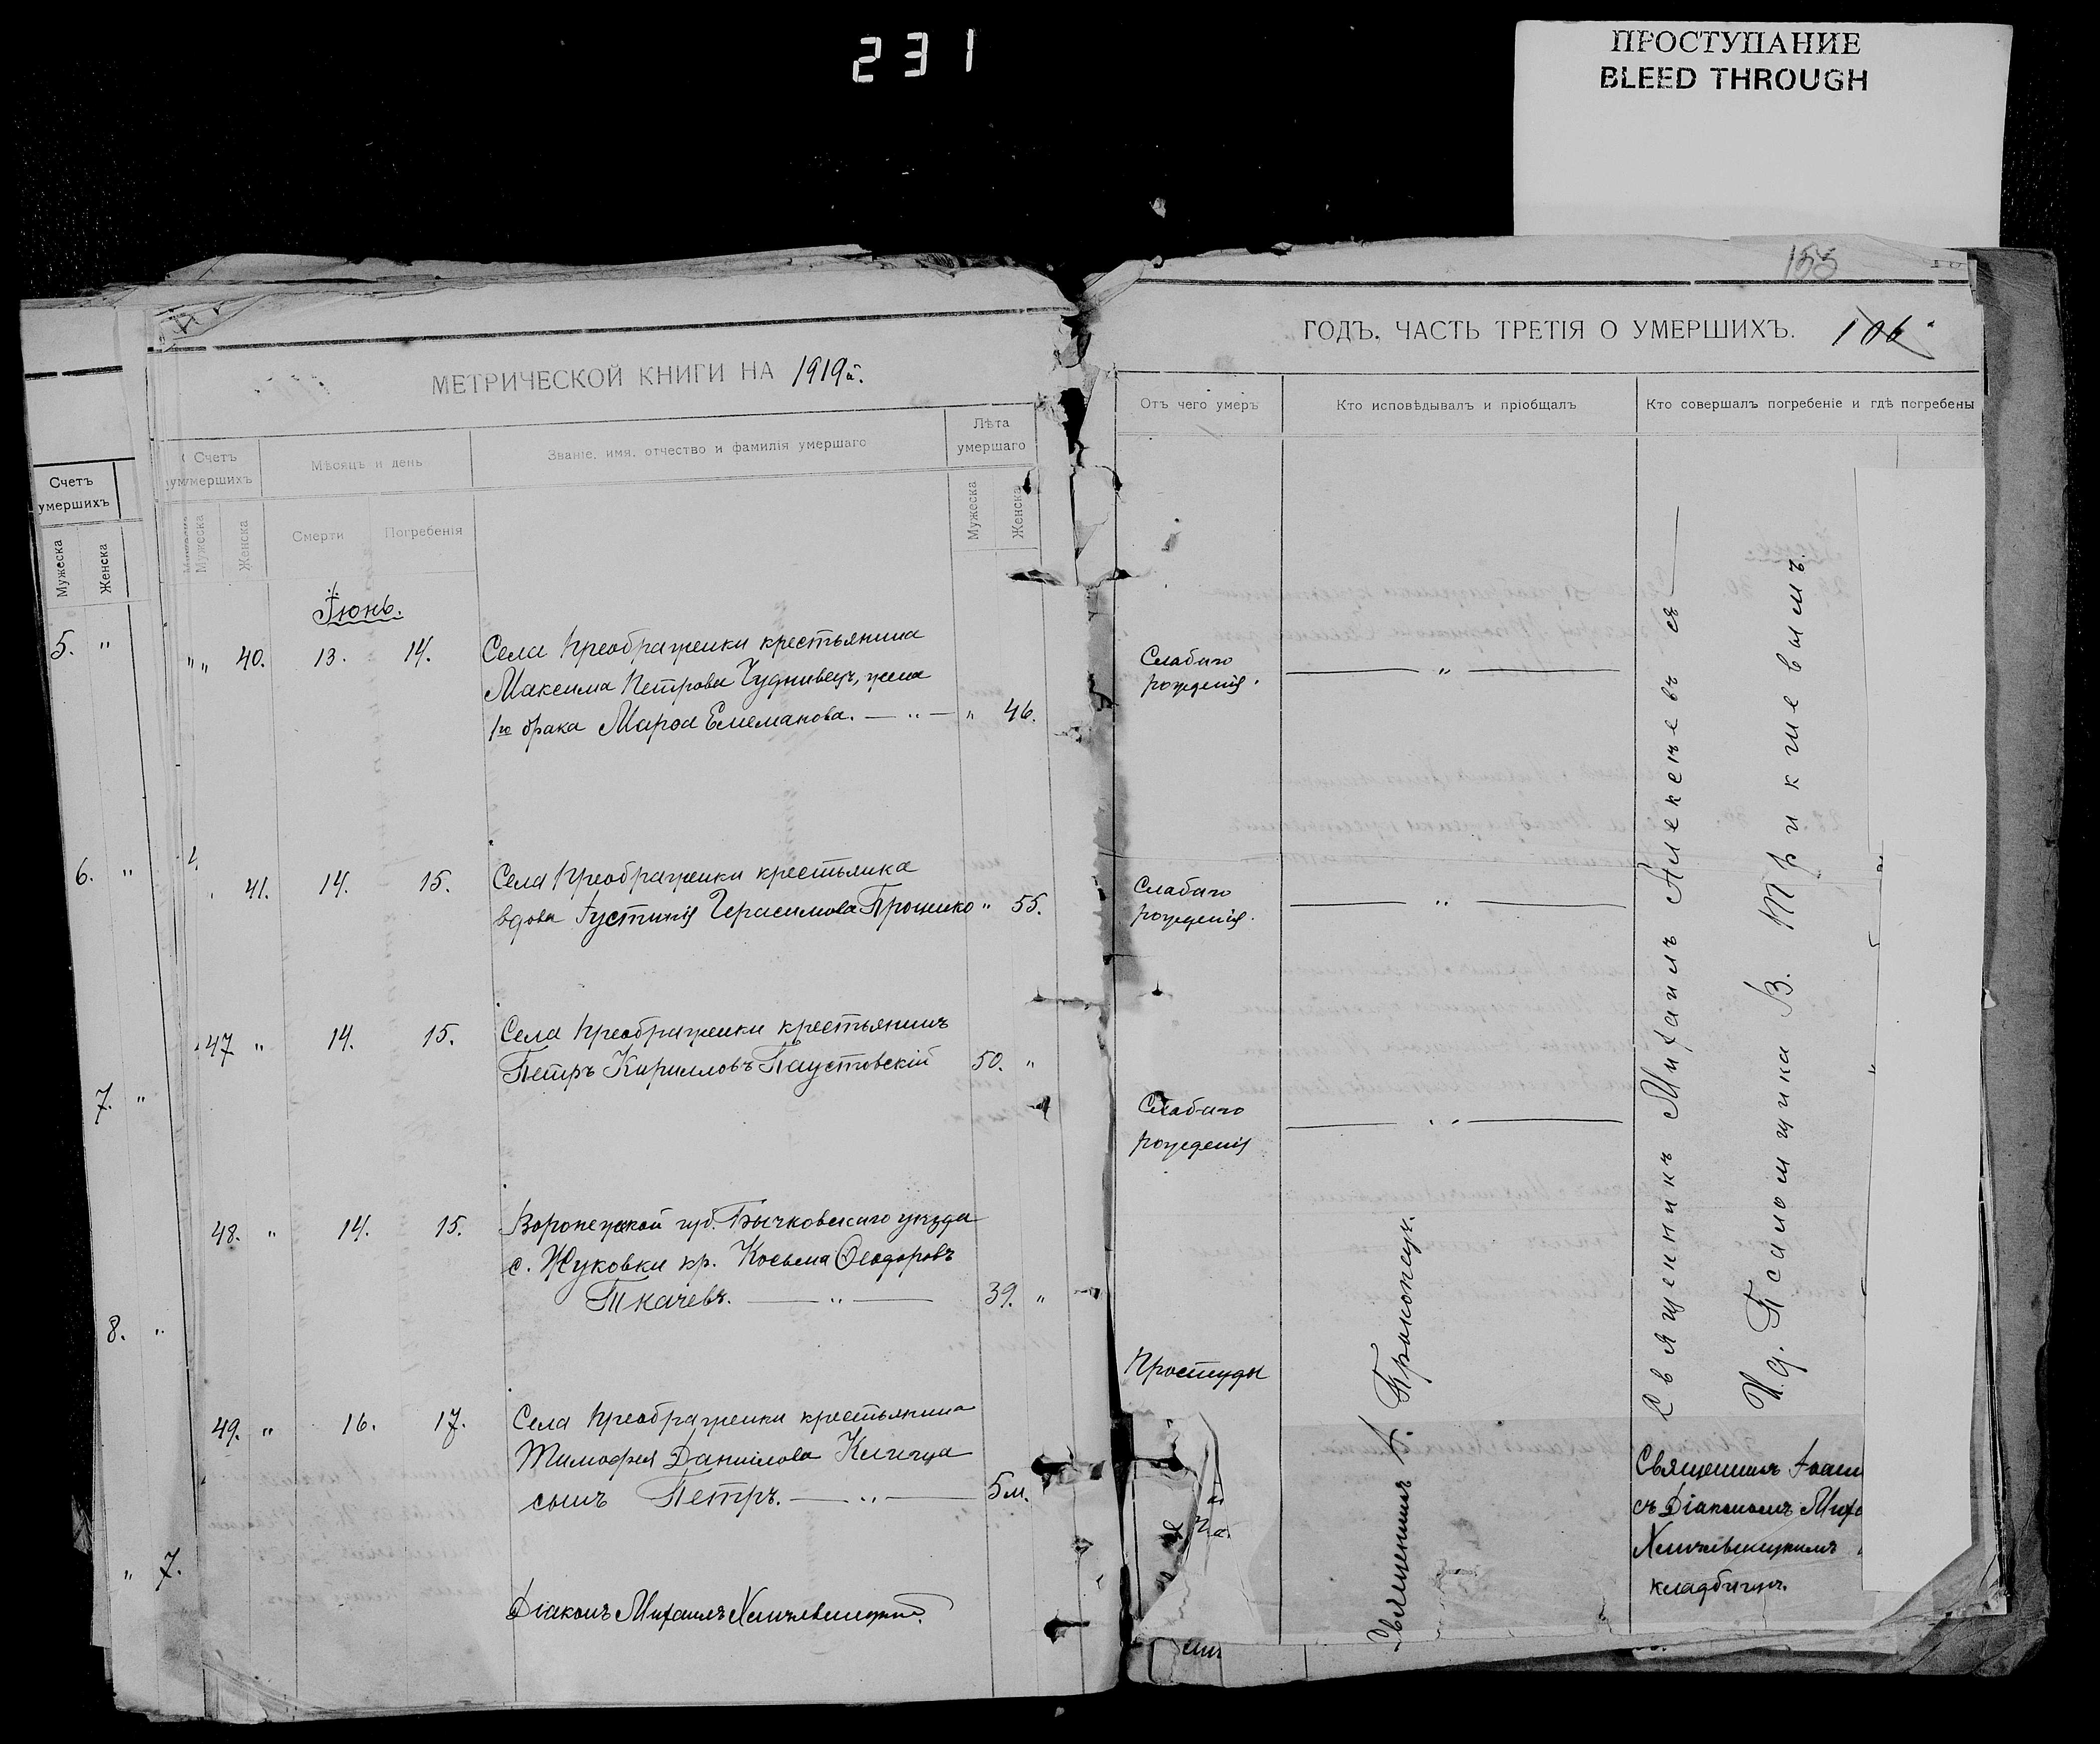 231
ПРОСТУПАНИЕ
BLEED THROUGH
155
МЕТРИЧЕСКОЙ КНИГИ НА 1919й.
Счетъ умершихъ
Мужеска
Женска
5. "
6. "
7. "
8. "
" 7.
Счетъ умершихъ
Мѣсяцъ и день
Званіе, имя, отчество и фамилія умершаго
Лѣта умершаго
Мужеска
Женска
Смерти
Погребенія
Мужеска
Женска
Іюнь.
" 40. 13. 14. Села Преображенки крестьянина
Максима Петрова Чуднивецъ, жена
1го брака Марѳа Емеманова. — " — " 46.
41. 14. 15. Села Преображенки крестьянка
вдова Іустинія Герасимова Проценко " 55.
47 " 14. 15. Села Преображенки крестьянинъ
Петръ Кирилловъ Паустовскій 50. "
48. " 14. 15. Воронежской губ. Бычковскаго уѣзда
с. Жуковки кр. Косьма Ѳеодоровъ
Ткачевъ. — " — 39. "
49. " 16. 17. Села Преображенки крестьянина
Тимофея Даниилова
сынъ Петръ. — " — 5 м.
Діаконъ Михаилъ
ГОДЪ, ЧАСТЬ ТРЕТІЯ О УМЕРШИХЪ. 106
Отъ чего умеръ
Кто исповѣдывалъ и пріобщалъ
Кто совершалъ погребеніе и гдѣ погребены
Слабаго
рожденія. — " —
Слабаго
рожденія. — " —
Слабаго
рожденія — " —
Простуды
Священникъ Прокопецъ.
Священникъ Михаилъ Алексѣевъ съ —
И. д. Псаломщика В. Трикшевымъ.
Священникъ Іоан
съ Діакономъ Миха
кладбищѣ.